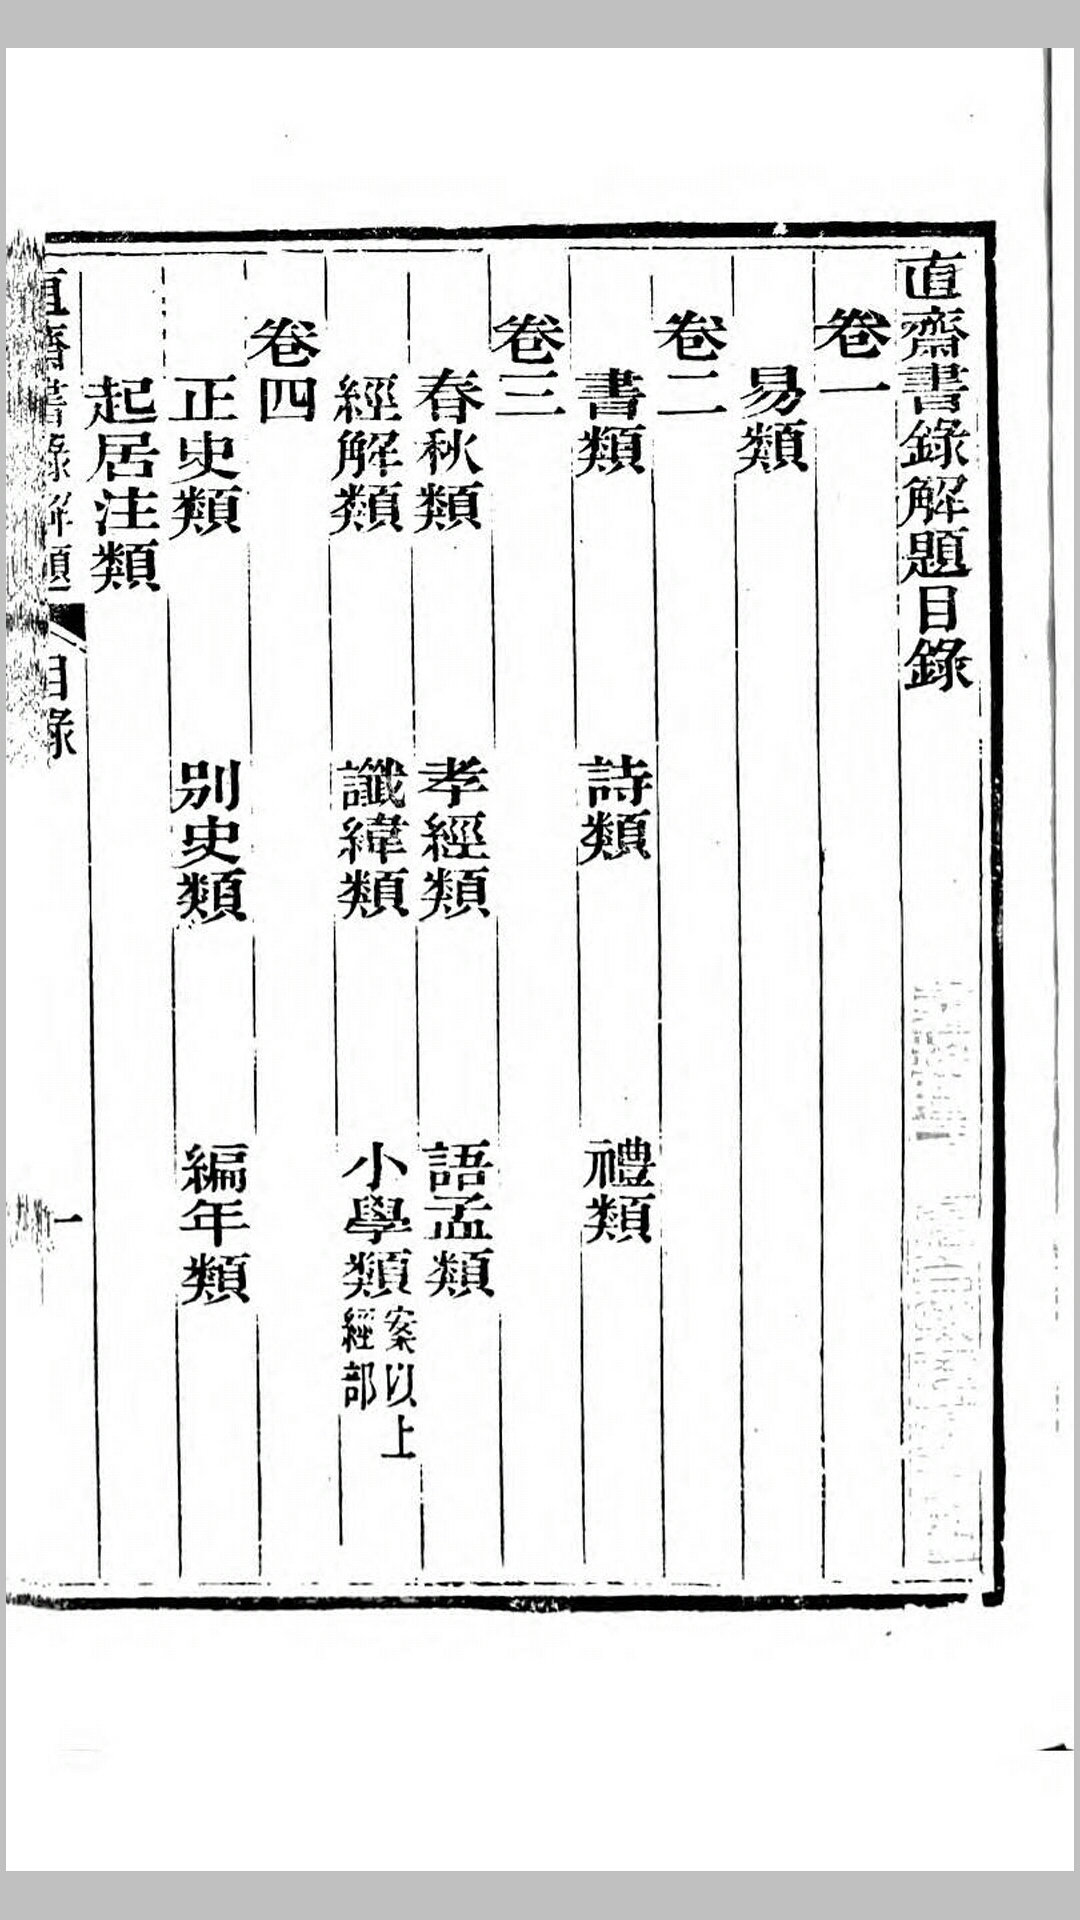 直齋書錄解題目錄
卷一
易類
卷二
書類　詩類　禮類
卷三
春秋類　孝經類　語孟類
經解類　讖緯類　小學類案以上經部
卷四
正史類　别史類　編年類
起居注類
直齋書錄解題　目錄　一